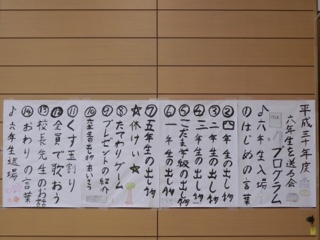 平成三十年度
六年生を送る会
プログラム
♪六年生入場
①はじめの言葉
②四年生の出し物
③二年生の出し物
④三年生の出し物
⑤こだま学級の出し物
⑥一年生の出し物
⑦五年生の出し物
☆休けい☆
⑧たてわりゲーム
⑨プレゼントの紹介
⑩六年生の出し物
⑪くす玉割り
⑫全員で歌おう
⑬校長先生のお話
⑭おわりの言葉
♪六年生退場